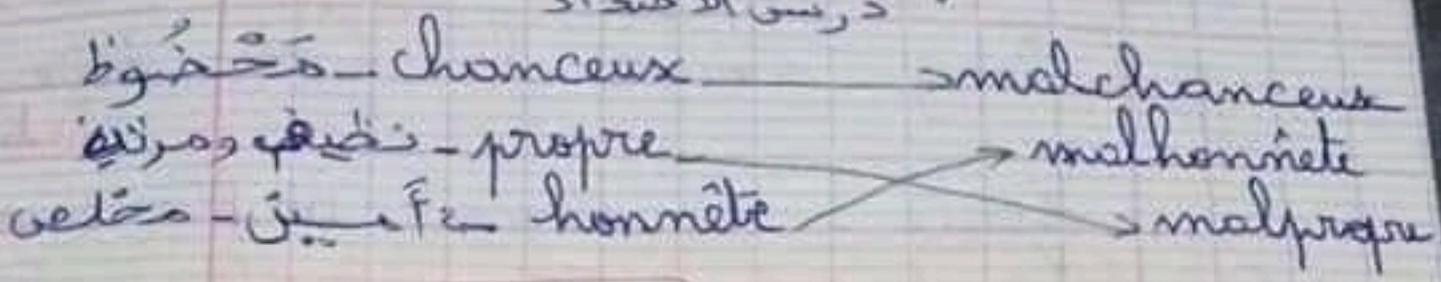 درس الأضداد
مَحْضُوظ - chanceux → malchanceux
نظيف ومرتب - propre malhonnête
مخلص - أمين ← honnête malpropre